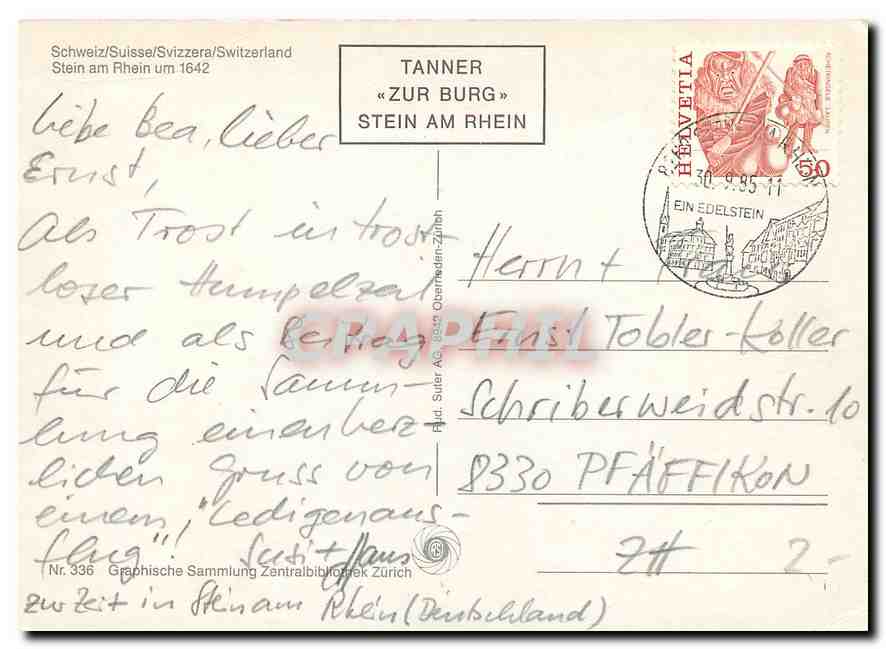 Schweiz/Suisse/Svizzera/Switzerland
Stein am Rhein um 1642
TANNER
«ZUR BURG»
STEIN AM RHEIN
HELVETIA
SCHEIBENGELB LAUPEN
50
30.9.85-11
EIN EDELSTEIN
Liebe Bea, lieber
Ernst,
Als Trost in trost-
loser Humpelzeit
und als Beitrag
für die Samm-
lung einen herz-
lichen Gruss von
einem „Ledigenaus-
flug"! Susi + Hans
zur Zeit in Stein am Rhein (Deutschland)
Rud. Suter AG, 8942 Oberrieden-Zürich
Herrn +
Ernst Tobler-Koller
Schriberweidstr. 10
8330 PFÄFFIKON
ZH
2-
Nr. 336 Graphische Sammlung Zentralbibliothek Zürich
CPAPHIL